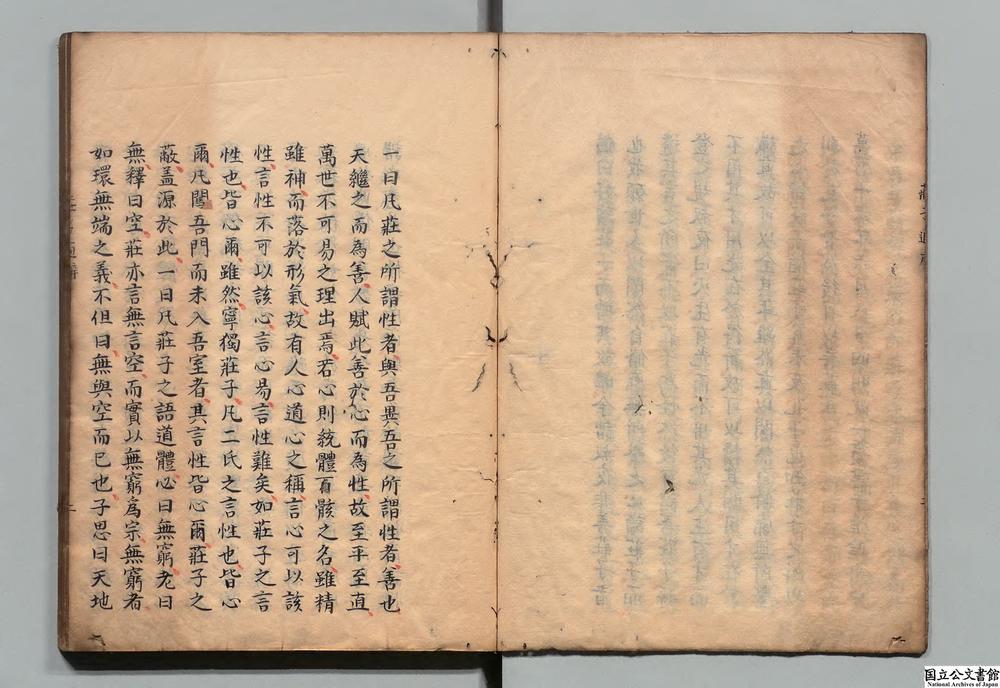 一曰凡莊之所謂性者與吾異吾之所謂性者善也
天繼之而為善人賦此善於心而為性故至平至直
萬世不可易之理出焉若心則統體百骸之名雖精
雖神而落於形氣故有人心道心之稱言心可以該
性言性不可以該心言心易言性難矣如莊子之言
性也皆心爾雖然寧獨莊子凡二氏之言性也皆心
爾凡闖吾門而未入吾室者其言性皆心爾莊子之
蔽盖源於此一曰凡莊子之語道體必曰無窮老曰
無釋曰空莊亦言無言空而實以無窮為宗無窮者
如環無端之義不但曰無與空而已也子思曰天地
国立公文書館
National Archives of Japan